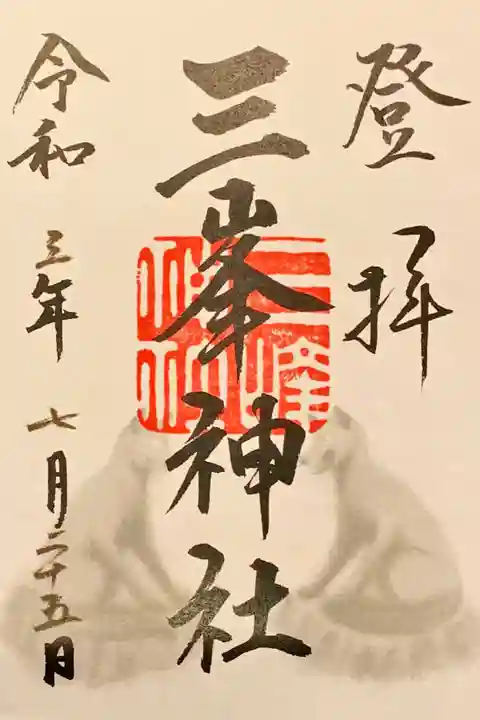 登拝
三峯神社
令和三年七月二十五日